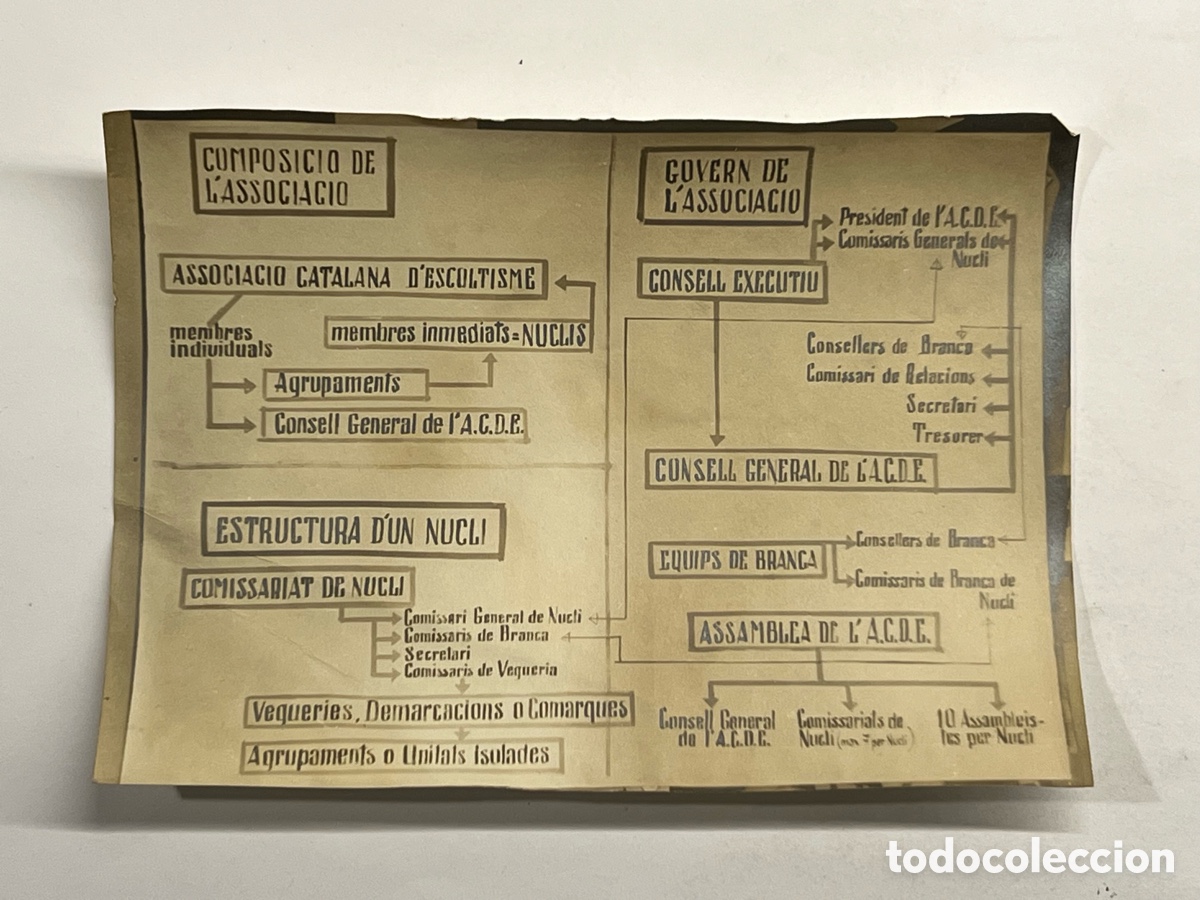 COMPOSICIO DE
L'ASSOCIACIO
ASSOCIACIO CATALANA D'ESCOLTISME
membres
individuals
membres inmediats=NUCLIS
Agrupaments
Consell General de l'A.C.D.E.
ESTRUCTURA D'UN NUCLI
COMISSARIAT DE NUCLI
Comissari General de Nucli
Comissaris de Branca
Secretari
Comissaris de Vegueria
Vegueries, Demarcacions o Comarques
Agrupaments o Unitats Isolades
GOVERN DE
L'ASSOCIACIO
President de l'A.C.D.E.
Comissaris Generals de
Nucli
CONSELL EXECUTIU
Consellers de Branca
Comissari de Relacions
Secretari
Tresorer
CONSELL GENERAL DE L'A.C.D.E.
EQUIPS DE BRANCA
Consellers de Branca
Comissaris de Branca de
Nucli
ASSAMBLEA DE L'A.C.D.E.
Consell General
de l'A.C.D.E.
Comissariats de
Nucli (max. 7 per Nucli)
10 Assambleis-
tes per Nucli
todocoleccion